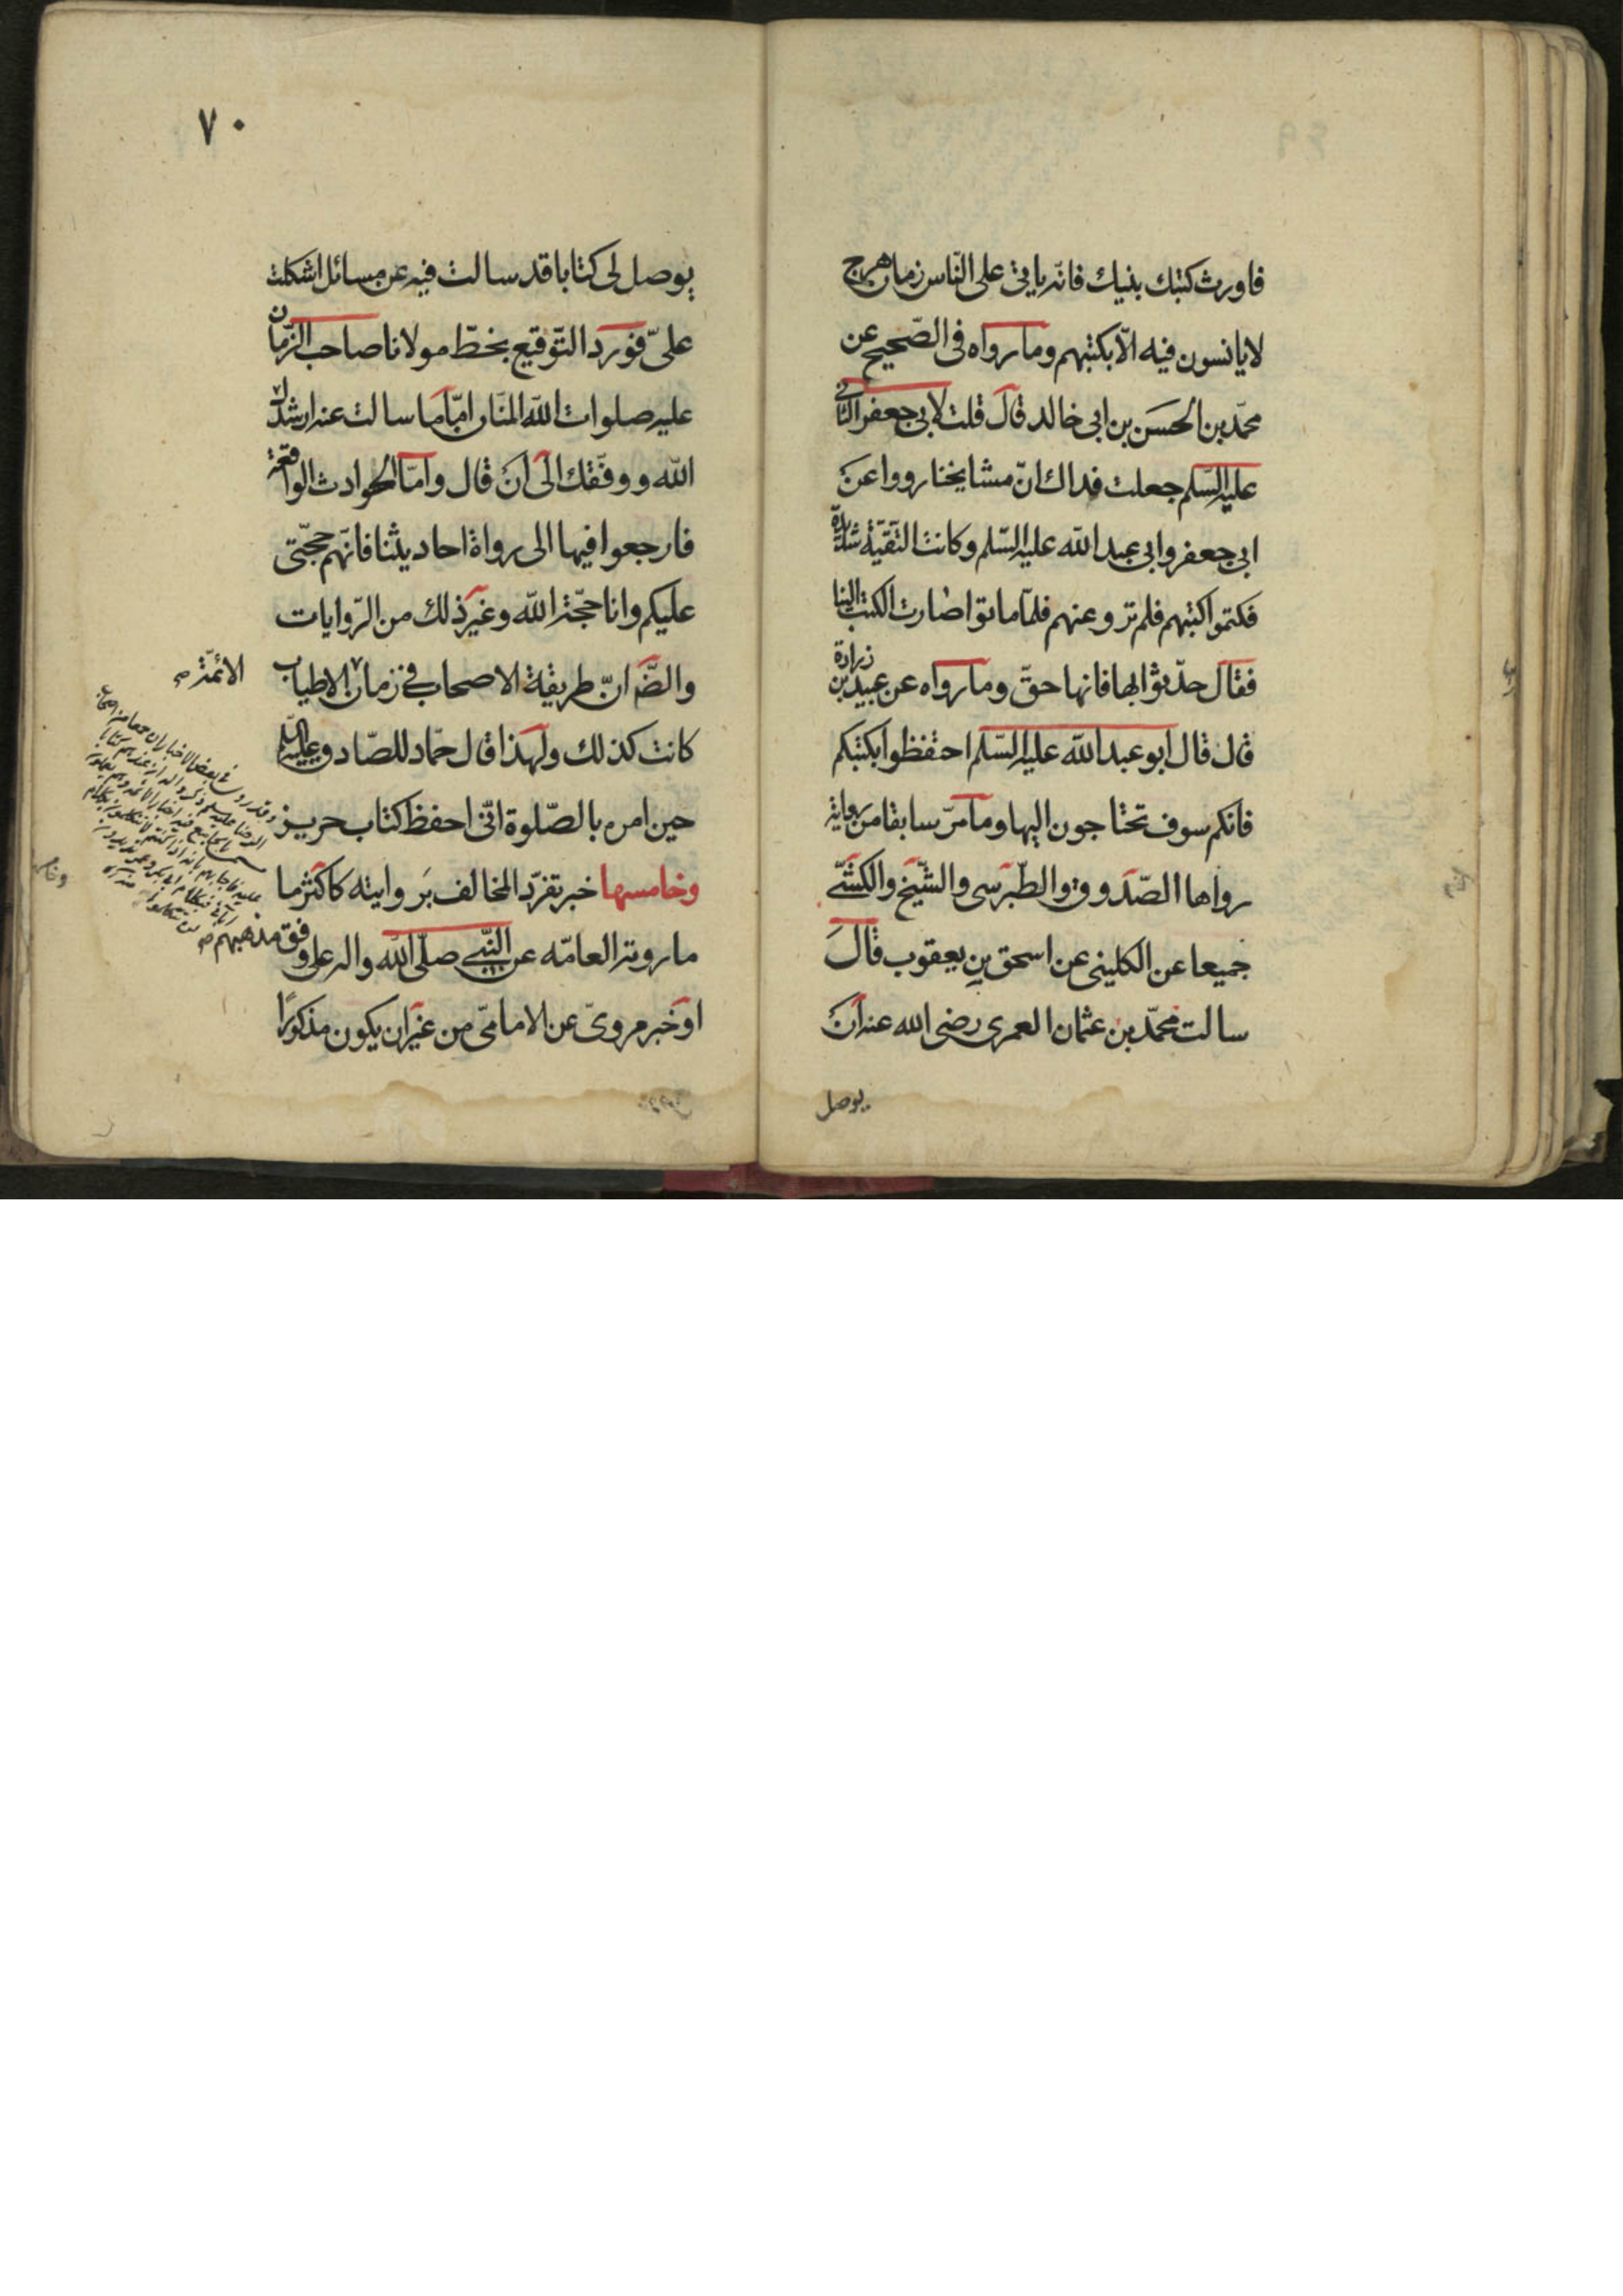 فاورث كتبك بنيك فانّه ياتى على النّاس زمان هرج
لايانسون فيه الّا بكتبهم وما رواه فى الصّحيح عن
محمّد بن الحسَن بن ابى خالد قال قلت لابى جعفر الثانى
عليه السّلم جعلت فداك انّ مشايخنا رووا عن
ابى جعفر وابى عبد الله عليه السّلم وكانت التقيّة شديدة
فكتموا كتبهم فلم ترو عنهم فلمّا ماتوا صارت الكتب الينا
فقال حدّثوا بها فانها حقّ وما رواه عن عبيد بن زرارة
قال قال ابو عبد الله عليه السّلم احتفظوا بكتبكم
فانكم سوف تحتاجون اليها وما مرّ سابقا من رواية
رواها الصّدوق والطّبرسى والشّيخ والكشّى
جميعا عن الكلينى عن اسحق بن يعقوب قال
سالت محمّد بن عثمان العمرى رضى الله عنه ان
يوصل
٧٠
يوصل لى كتابا قد سالت فيه عن مسائل اشكلت
علىّ فورد التّوقيع بخطّ مولانا صاحب الزّمان
عليه صلوات الله المنّان امّا ما سالت عنه ارشدك
الله ووفّقك الى ان قال وامّا الحوادث الواقعة
فارجعوا فيها الى رواة احاديثنا فانّهم حجّتى
عليكم وانا حجّة الله وغير ذلك من الرّوايات
والضّ انّ طريقة الاصحاب فى زمان الاطياب
الائمّة
كانت كذلك ولهذا قال حمّاد للصّادق عليه السّلم
حين امره بالصّلوة انّى احفظ كتاب حريز
وخامسها خبر تفرّد المخالف بروايته كاكثر ما
ما روته العامّه عن النّبى صلّى الله واله على وفق مذهبهم
او خبر مروىّ عن الامامىّ من غير ان يكون مذكورًا